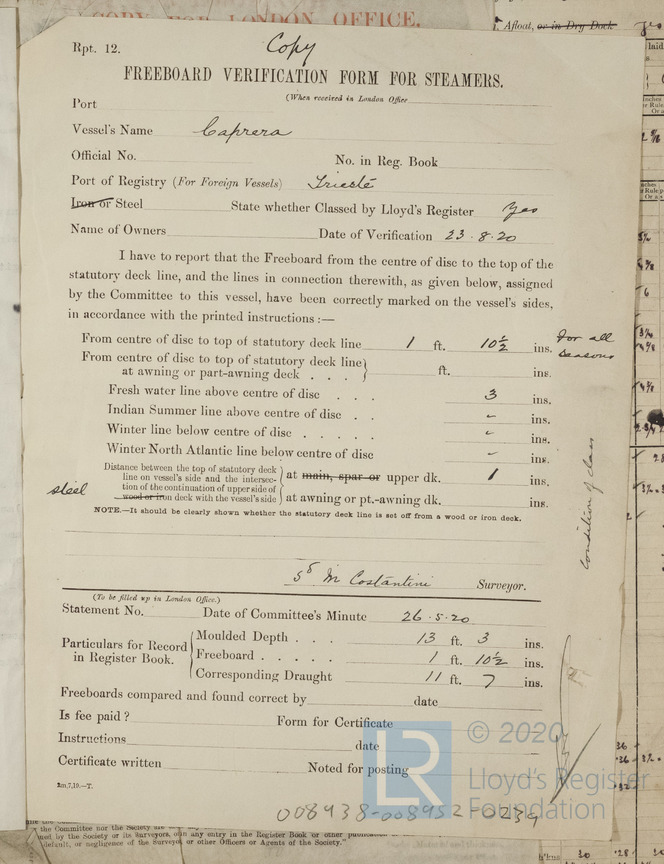 COPY FOR LONDON OFFICE.
Afloat, or in Dry Dock
Rpt. 12.
Copy
FREEBOARD VERIFICATION FORM FOR STEAMERS.
(When received in London Office
Port
Vessel's Name Caprera
Official No. No. in Reg. Book
Port of Registry (For Foreign Vessels) Trieste
Iron or Steel State whether Classed by Lloyd's Register Yes
Name of Owners Date of Verification 23.8.20
I have to report that the Freeboard from the centre of disc to the top of the
statutory deck line, and the lines in connection therewith, as given below, assigned
by the Committee to this vessel, have been correctly marked on the vessel's sides,
in accordance with the printed instructions :—
From centre of disc to top of statutory deck line 1 ft. 10½ ins. For all
seasons
From centre of disc to top of statutory deck line
at awning or part-awning deck . . . ft. ins.
Fresh water line above centre of disc . . . 3 ins.
Indian Summer line above centre of disc . . - ins.
Winter line below centre of disc . . . . . - ins.
Winter North Atlantic line below centre of disc - ins.
Distance between the top of statutory deck
line on vessel's side and the intersec-
tion of the continuation of upper side of
wood or iron deck with the vessel's side
at main, spar or upper dk. 1 ins.
steel
at awning or pt.-awning dk. ins.
NOTE.—It should be clearly shown whether the statutory deck line is set off from a wood or iron deck.
condition of class
M Costantini Surveyor.
(To be filled up in London Office.)
Statement No. Date of Committee's Minute 26.5.20
Particulars for Record
in Register Book.
Moulded Depth . . . 13 ft. 3 ins.
Freeboard . . . . . 1 ft. 10½ ins.
Corresponding Draught 11 ft. 7 ins.
Freeboards compared and found correct by date
Is fee paid ? Form for Certificate
Instructions date
Certificate written Noted for posting
2m,7,19.—T.
© 2020
LR
Lloyd's Register
Foundation
008938-008952-0239
the Committee nor the Society
by the Society or its Surveyors, or in any entry in the Register Book or other
default, or negligence of the Surveyors, or other Officers or Agents of the Society."